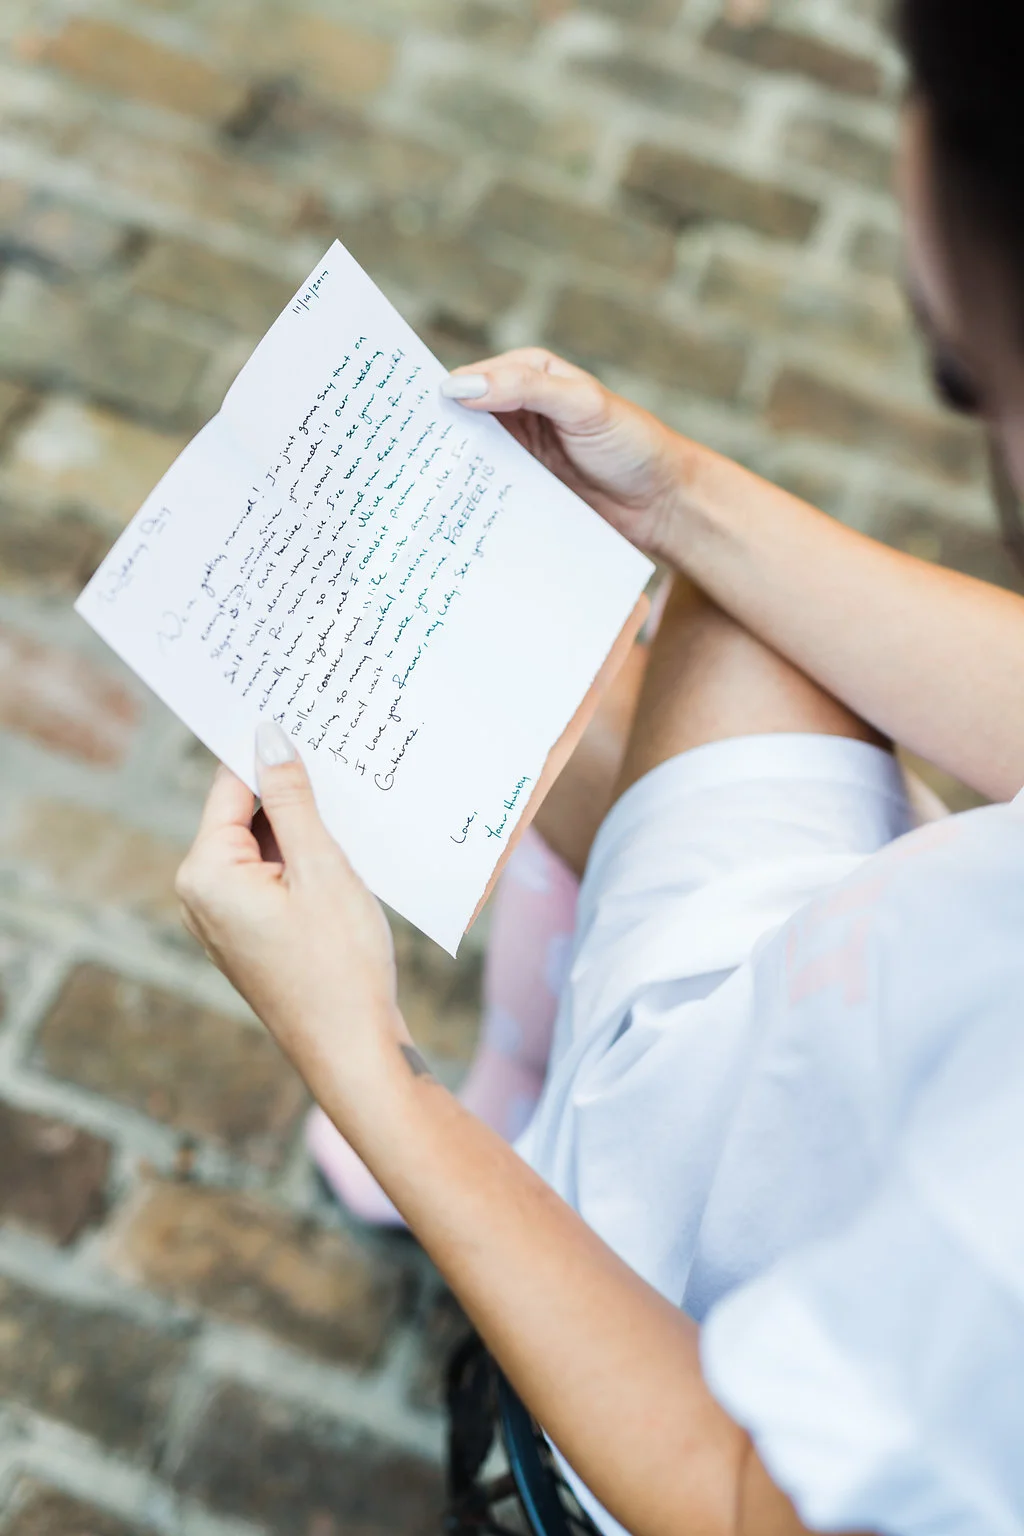 11/19/2017
Wedding Day
We're getting married! I'm just gonna say that on
everything now since you made it our wedding
slogan I can't believe im about to see your beautiful
self walk down that isle. I've been waiting for this
moment for such a long time and the fact that it's
actually here is so surreal. We've been through
so much together and I couldn't picture riding the
roller coaster that is life with anyone else. I'm
feeling so many beautiful emotions right now and I
just can't wait to make you mine FOREVER!
I love you forever, my lady. See you soon, Mrs
Gutierrez.
Love,
Your Hubby